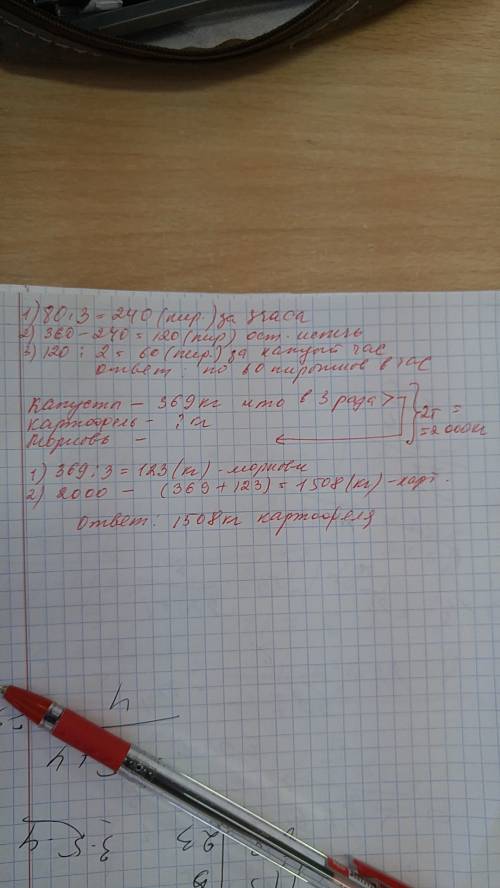 1) 80·3 = 240 (пир.) за 3 часа
2) 360 - 240 = 120 (пир) ост. испечь
3) 120 : 2 = 60 (пир.) за каждый час
Ответ: по 60 пирожков в час
Капусты - 369 кг что в 3 раза >
картофель - ? кг
Морковь -
2т =
= 2000кг
1) 369:3 = 123 (кг) - моркови
2) 2000 - (369 + 123) = 1508 (кг) - карт.
Ответ: 1508 кг картофеля
4
3-5-4
23